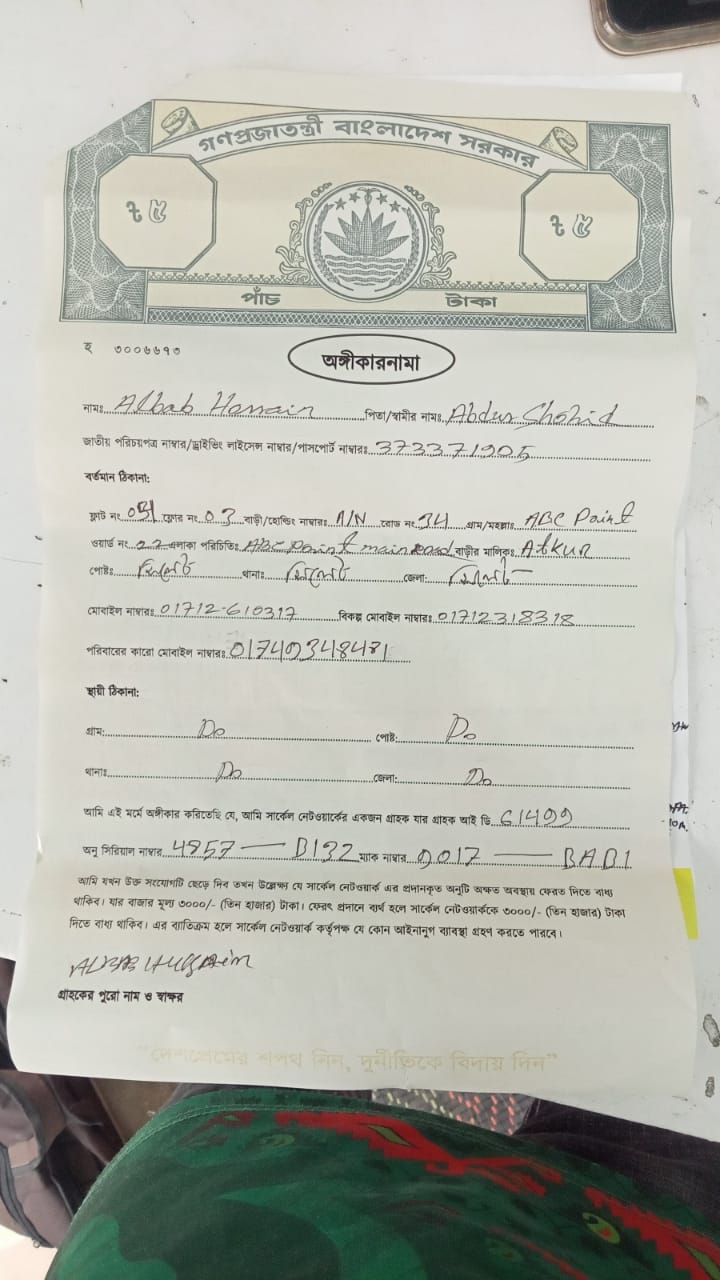 গণপ্রজাতন্ত্রী বাংলাদেশ সরকার
৳ ৫ ৳ ৫
পাঁচ টাকা
হ ৩০০৬৬৭৩
অঙ্গীকারনামা
নামঃ Albab Hossain পিতা/স্বামীর নামঃ Abdus Shohid
জাতীয় পরিচয়পত্র নাম্বার/ড্রাইভিং লাইসেন্স নাম্বার/পাসপোর্ট নাম্বারঃ 373371905
বর্তমান ঠিকানা:
ফ্লাট নং ফ্লোর নং 03 বাড়ী/হোল্ডিং নাম্বারঃ A/N রোড নং 34 গ্রাম/মহল্লাঃ ABC Point
ওয়ার্ড নং 22 এলাকা পরিচিতিঃ ABC Point main Road বাড়ীর মালিকঃ Atkur
পোষ্টঃ সিলেট থানাঃ সিলেট জেলা: সিলেট
মোবাইল নাম্বারঃ 01712-610317 বিকল্প মোবাইল নাম্বারঃ 01712318318
পরিবারের কারো মোবাইল নাম্বারঃ 01749348481
স্থায়ী ঠিকানা:
গ্রাম: Do পোষ্ট: Do
থানাঃ Do জেলা: Do
আমি এই মর্মে অঙ্গীকার করিতেছি যে, আমি সার্কেল নেটওয়ার্কের একজন গ্রাহক যার গ্রাহক আই ডি 61499
অনু সিরিয়াল নাম্বার 4857 — B132 ম্যাক নাম্বার 9017 — BAB1
আমি যখন উক্ত সংযোগটি ছেড়ে দিব তখন উল্লেখ্য যে সার্কেল নেটওয়ার্ক এর প্রদানকৃত অনুটি অক্ষত অবস্থায় ফেরত দিতে বাধ্য
থাকিব। যার বাজার মূল্য ৩০০০/- (তিন হাজার) টাকা। ফেরৎ প্রদানে ব্যর্থ হলে সার্কেল নেটওয়ার্ককে ৩০০০/- (তিন হাজার) টাকা
দিতে বাধ্য থাকিব। এর ব্যতিক্রম হলে সার্কেল নেটওয়ার্ক কর্তৃপক্ষ যে কোন আইনানুগ ব্যবস্থা গ্রহণ করতে পারবে।
গ্রাহকের পুরো নাম ও স্বাক্ষর
“দেশপ্রেমের শপথ নিন, দুর্নীতিকে বিদায় দিন”